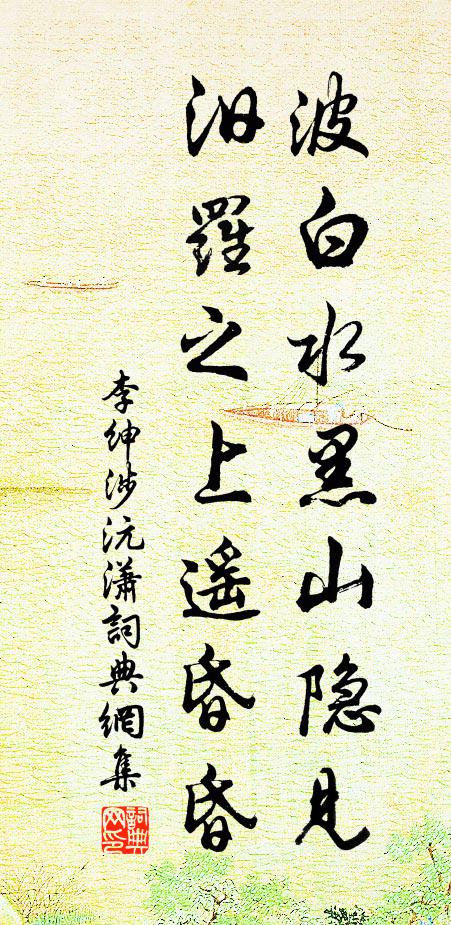 波白水黑山隐见
汨羅之上遥昏昏
李绅涉沅潇詞典網集
詞典网印